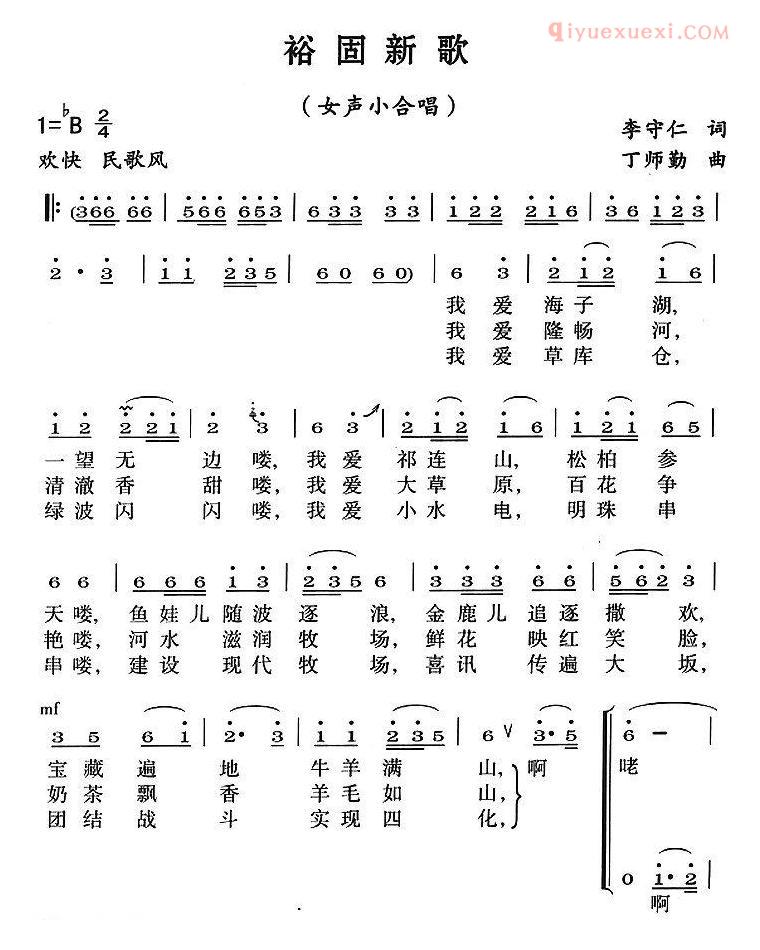 qiyuexuexi.COM
裕固新歌
（女声小合唱）
1=♭B 2/4
李守仁 词
欢快 民歌风
丁师勤 曲
(366 66 | 566 653 | 633 33 | 122 216 | 36 123 |
2· 3 | 11 235 | 60 60) | 6 3 | 212 16 |
我爱海子湖,
我爱隆畅河,
我爱草库仓,
12 221 | 2 3 | 6 3 | 212 16 | 121 65 |
一望无边喽,我爱祁连山,松柏参
清澈香甜喽,我爱大草原,百花争
绿波闪闪喽,我爱小水电,明珠串
6 6 | 666 13 | 235 6 | 333 66 | 562 3 |
天喽,鱼娃儿随波逐浪,金鹿儿追逐撒欢,
艳喽,河水滋润牧场,鲜花映红笑脸,
串喽,建设现代牧场,喜讯传遍大坂,
mf
3 5 61 | 2· 3 | 11 235 | 6 V 3·5 | 6 – |
宝藏遍地牛羊满山,啊咾
奶茶飘香羊毛如山,
团结战斗实现四化,
0 1·2
啊